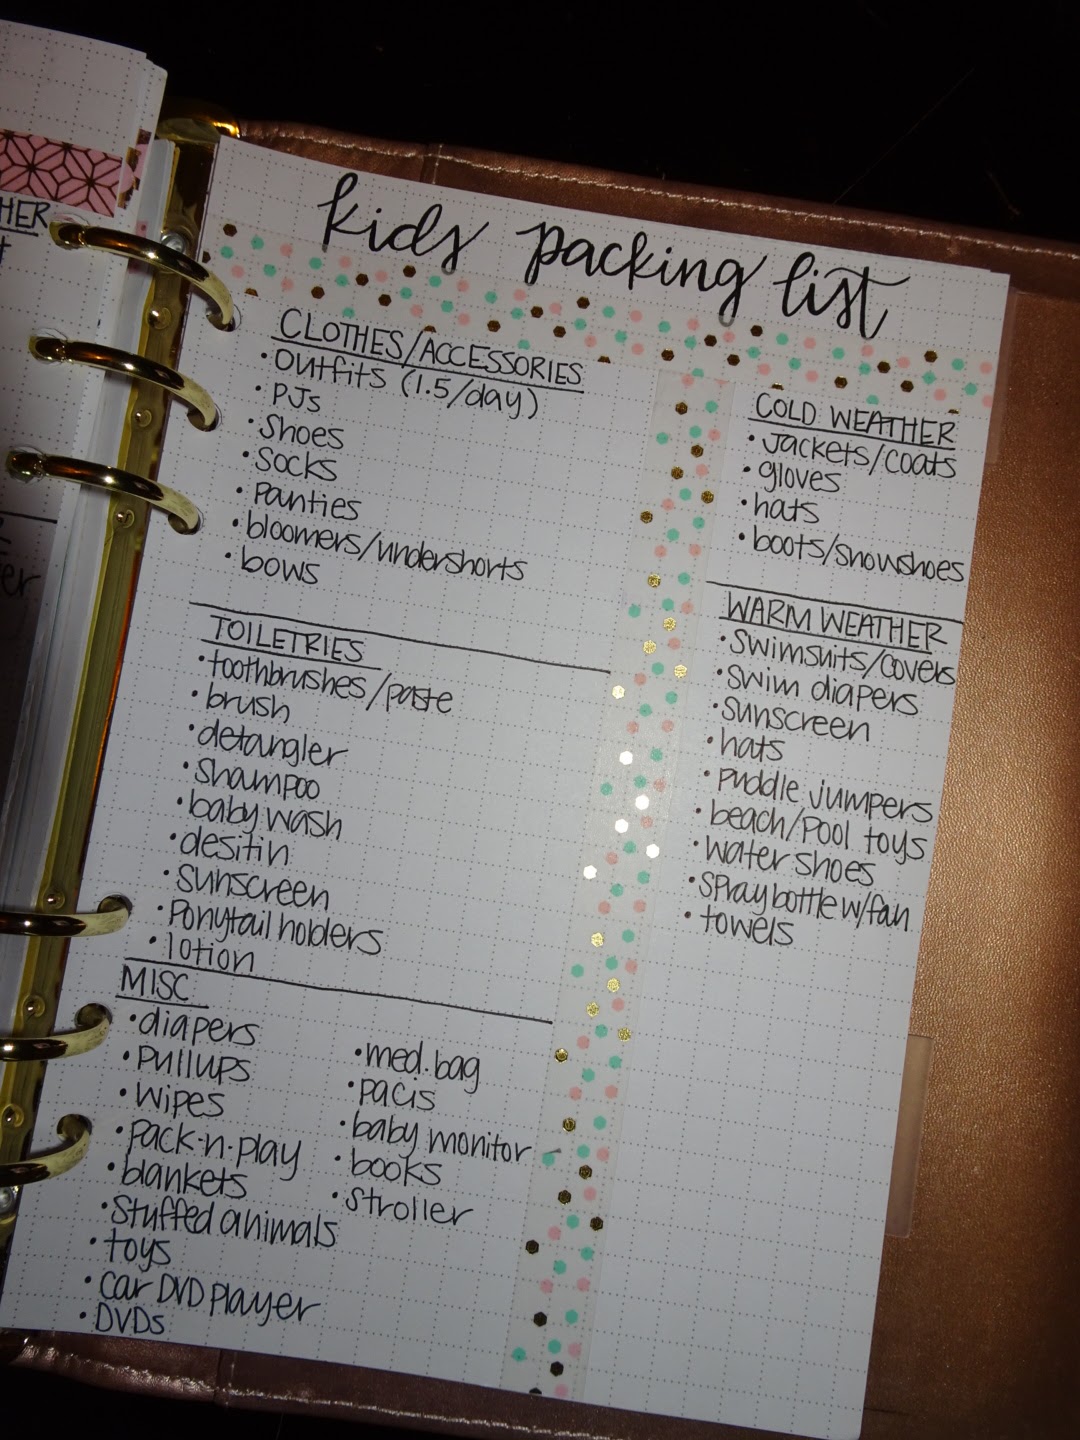 HER
kids packing list
CLOTHES/ACCESSORIES
• Outfits (1.5/day)
• PJs
• Shoes
• Socks
• Panties
• bloomers/undershorts
• bows
TOILETRIES
• toothbrushes/paste
• brush
• detangler
• Shampoo
• baby wash
• desitin
• sunscreen
• Ponytail holders
• lotion
MISC
• diapers
• Pullups
• Wipes
• Pack-n-play
• blankets
• Stuffed animals
• toys
• car DVD player
• DVDs
• med. bag
• pacis
• baby monitor
• books
• stroller
COLD WEATHER
• Jackets/coats
• gloves
• hats
• boots/snowshoes
WARM WEATHER
• Swimsuits/covers
• swim diapers
• sunscreen
• hats
• puddle jumpers
• beach/pool toys
• water shoes
• spray bottle w/fan
• towels